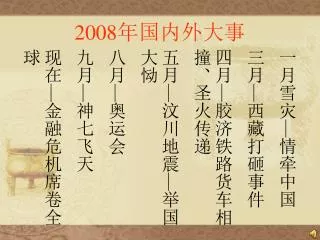 2008年国内外大事
一月雪灾—情牵中国
三月—西藏打砸事件
四月—胶济铁路货车相
撞、圣火传递
五月—汶川地震 举国
大恸
八月—奥运会
九月—神七飞天
现在—金融危机席卷全
球